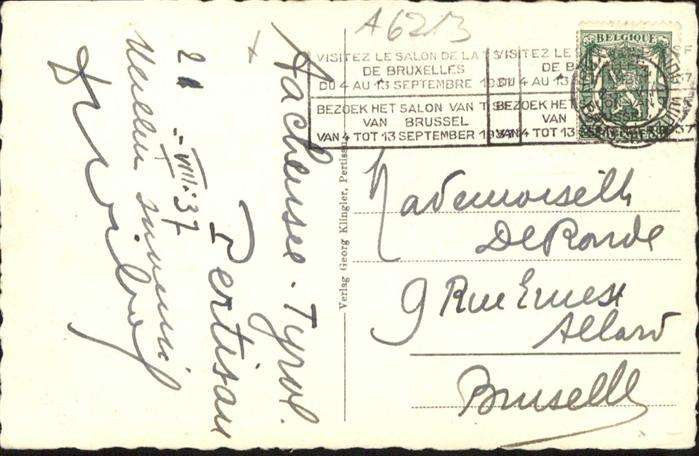 A6213
VISITEZ LE SALON DE LA T.S
DE BRUXELLES
DU 4 AU 13 SEPTEMBRE 1937
BEZOEK HET SALON VAN T.S
VAN BRUSSEL
VAN 4 TOT 13 SEPTEMBER 1937
VISITEZ LE S
DE B
DU 4 AU 13
BEZOEK HET
VAN
VAN 4 TOT 13 SEPTEMBER 1937
BELGIQUE
Achensee - Tyrol.
Pertisau
21 - VIII. 37
Meilleur souvenir
Verlag Georg Klingler, Pertisau
Mademoiselle
De Ronde
9 Rue Ernest
Allard
Bruxelles